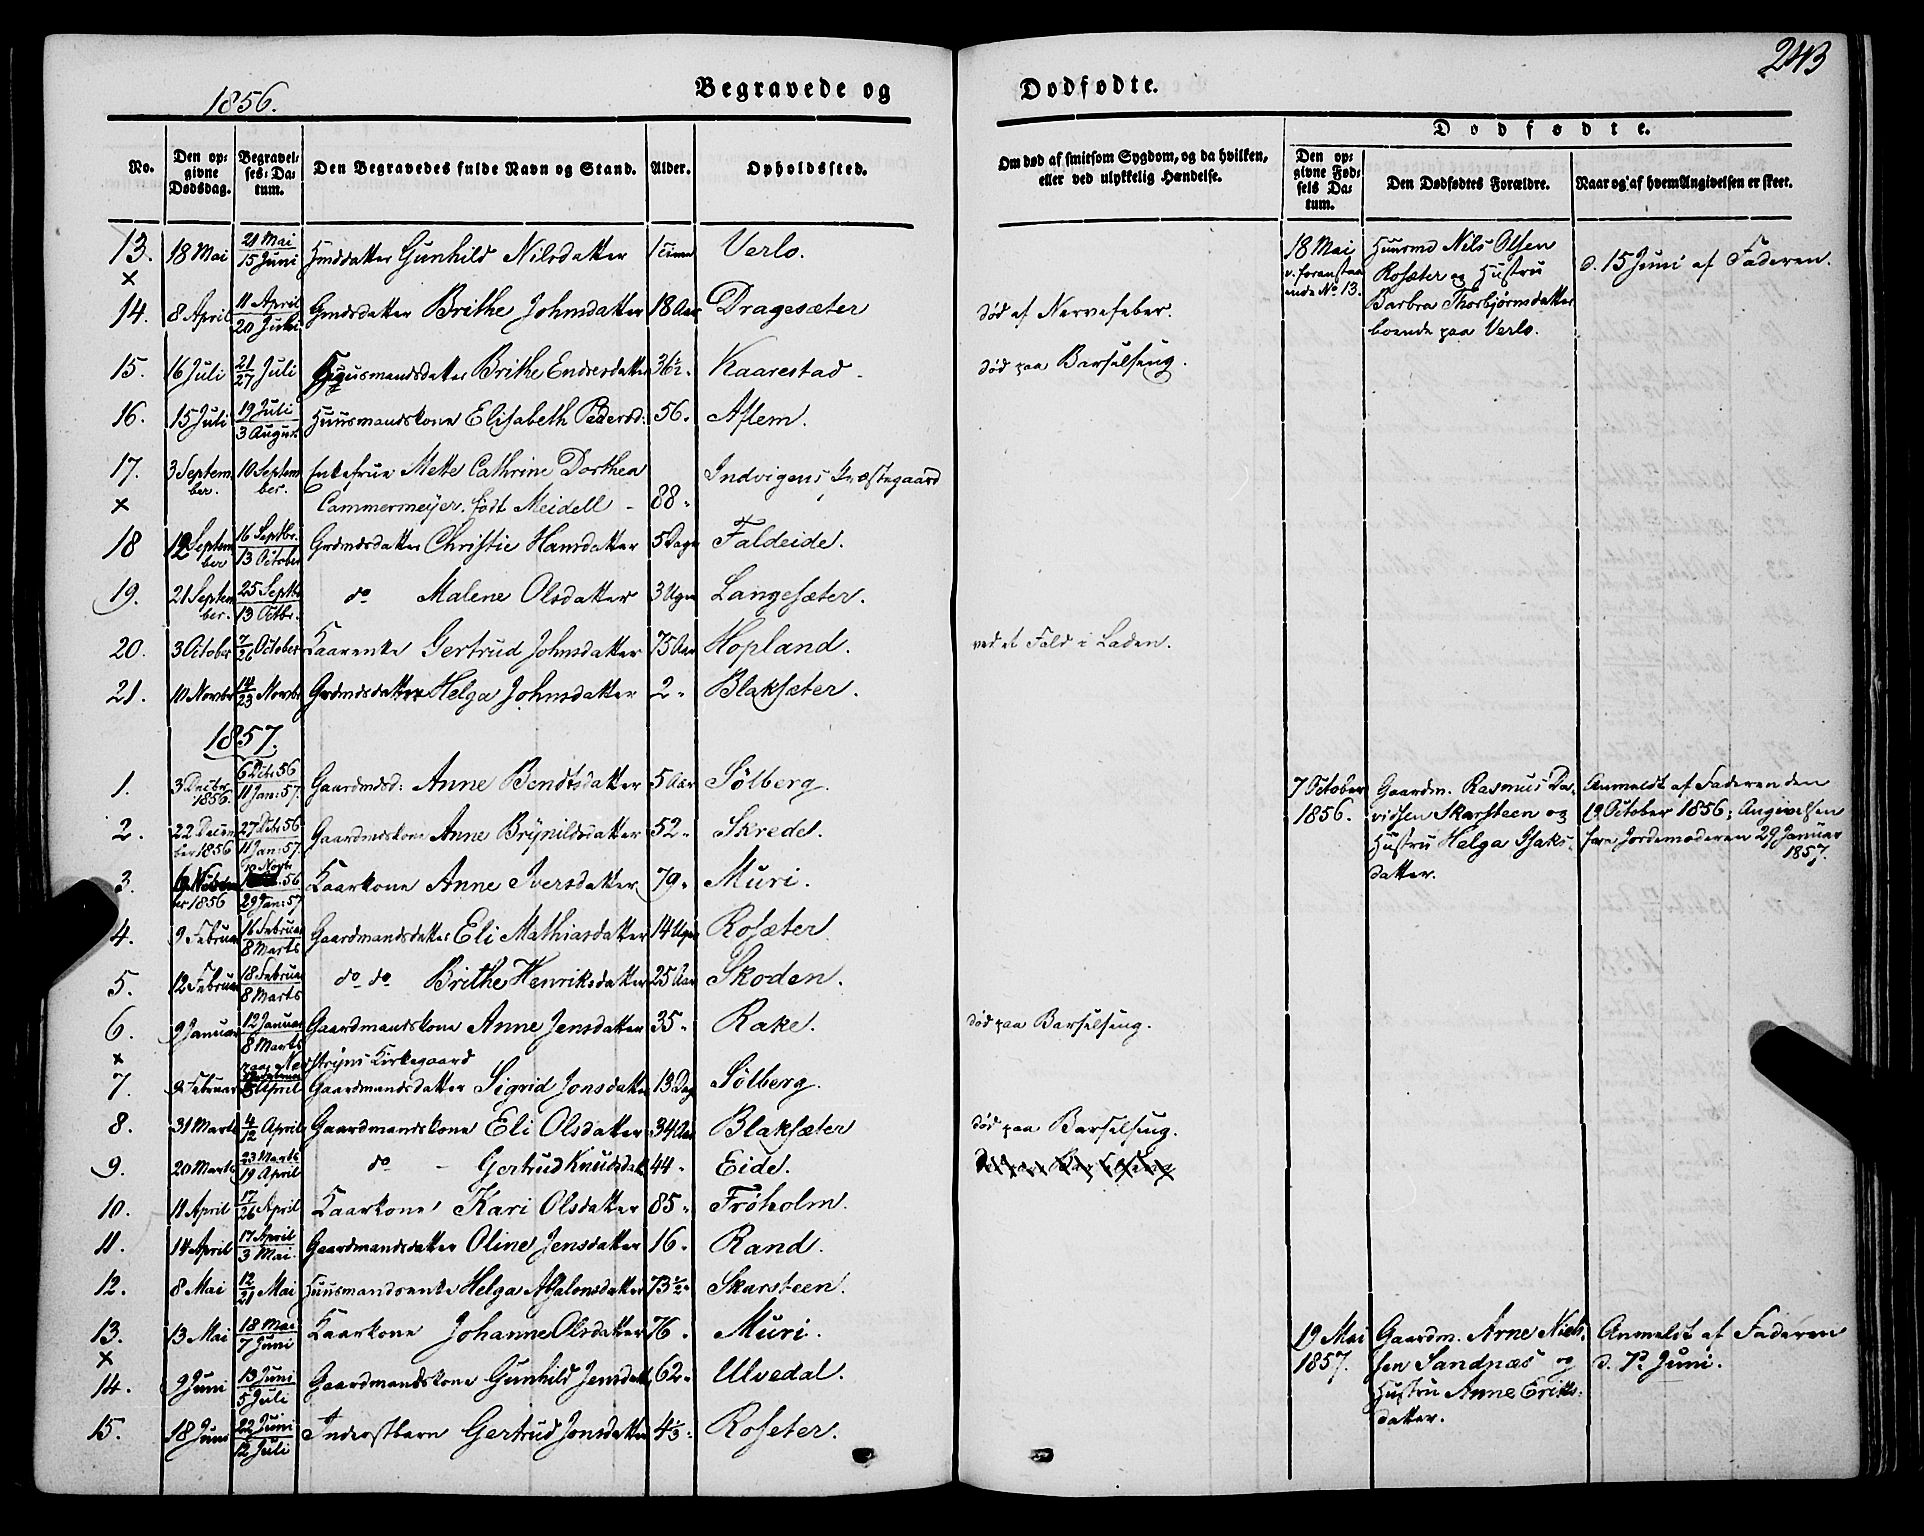 243
1856.
Begravede og Dødfødte.
Dødfødte.
No.
Den opgivne Dødsdag.
Begravelses-Datum.
Den Begravedes fulde Navn og Stand.
Alder.
Opholdssted.
Om død af smitsom Sygdom, og da hvilken, eller ved ulykkelig Hændelse.
Den opgivne Fødsels Datum.
Den Dødfødtes Forældre.
Naar og af hvem Angivelsen er skeet.
13. 18 Mai 21 Mai 15 Juni Gunhild Nilsdatter 1 Verlo.
×
14. 8 April 11 April 20 Gmdsdatter Brithe Johnsdatter 18 Aar Dragesæter død af Nervefeber.
15. 16 Juli 21/27 Juli Huusmandsdatter Brithe Endresdatter 36½ Kaarestad død paa Barselseng.
16. 15 Juli 19 Juli 3 August Huusmandskone Elisabeth Pedersd: 56. Aflem.
17. 3 September. 10 September. Enkefrue Mette Cathrine Dorthea
× Cammermeijer, født Meidell - 88 " Indvigens Præstegaard
18 12 September 16 Septbr. 13 October Grdmdsdatter Christie Hansdatter 5 Dage Faldeide.
19. 21 September. 25 Septbr 13 Octbr. do Malene Olsdatter 3 Uger Langesæter.
20. 3 October 7/26 October Kaarenke Gertrud Johnsdatter 75 Aar Hopland. ved et Fald i Laden.
21. 10 Novbr 14/23 Novbr Grdmdsdatter Helga Johnsdatter 2 " Blaksæter.
1857.
1. 3 Decber 1856. 6 Dcb: 56 11 Jan: 57. Gaardmdsd: Anne Bendtsdatter 5 Aar Sølberg.
2. 22 December 1856 27 Dcb: 56 11 Jan: 57. Gaardmdskone Anne Brijnildsdatter 52 " Skrede.
3. 6 1856 Novbr 56 29 Jan: 57 Kaarkone Anne Iversdatter 79 " Muri.
4. 9 Februar 16 Februar 8 Marts Gaardmandsdatter Eli Mathiasdatter 14 Uger Rosæter.
5. 12 Februar 18 Februar 8 Marts do do Brithe Henriksdatter 25 Aar Skoden.
6. 9 Januar 12 Januar 8 Marts Gaardmandskone Anne Jensdatter 35 " Rake. død paa Barselseng.
× paa Nordstrijns Kirkegaard
7. 2 Februar April Gaardmandsdatter Sigrid Jonsdatter 13 Dag Sølberg.
8. 31 Marts 4/12 April Gaardmandskone Eli Olsdatter 34 Aar Blaksæter død paa Barselseng.
9. 20 Marts 23 Marts 19 April do - Gertrud Knudsdat 44 " Eide.
10. 11 April 17/26 April Kaarkone Kari Olsdatter 85 " Frøholm.
11. 14 April 17 April 3 Mai. Gaardmandsdatter Oline Jensdatter 16 " Rand.
12. 8 Mai 12/21 Mai Huusmandsenke Helga Absalonsdatter 73½ " Skarsteen.
13. 13 Mai 18 Mai 7 Juni Kaarkone Johanne Olsdatter 76 " Muri.
×
14. 9 Juni 13 Juni 5 Juli Gaardmandskone Gunhild Jensdatt 62 " Ulvedal.
15. 18 Juni 22 Juni 12 Juli Inderstbarn Gertrud Jonsdatter 4½ " Roseter.
18 Mai
v. foranstaaende No 13.
Huusmd Nils Olsen
Rosæter og Hustru
Barbra Thorbjørnsdatter
boende paa Verlo.
d. 15 Juni af Faderen.
7 October
1856.
Gaardm. Rasmus Da-
vidsen Skarsteen og
Hustru Helga Isaks-
datter.
Anmeldt af Faderen den
19 October 1856; Angivelsen
fra Jordemoderen 29 Januar
1857.
19 Mai
1857.
Gaardm. Arne Niel-
sen Sandnæs og
Hustru Anne Eriks-
datter.
Anmeldt af Faderen
d. 7de Juni.